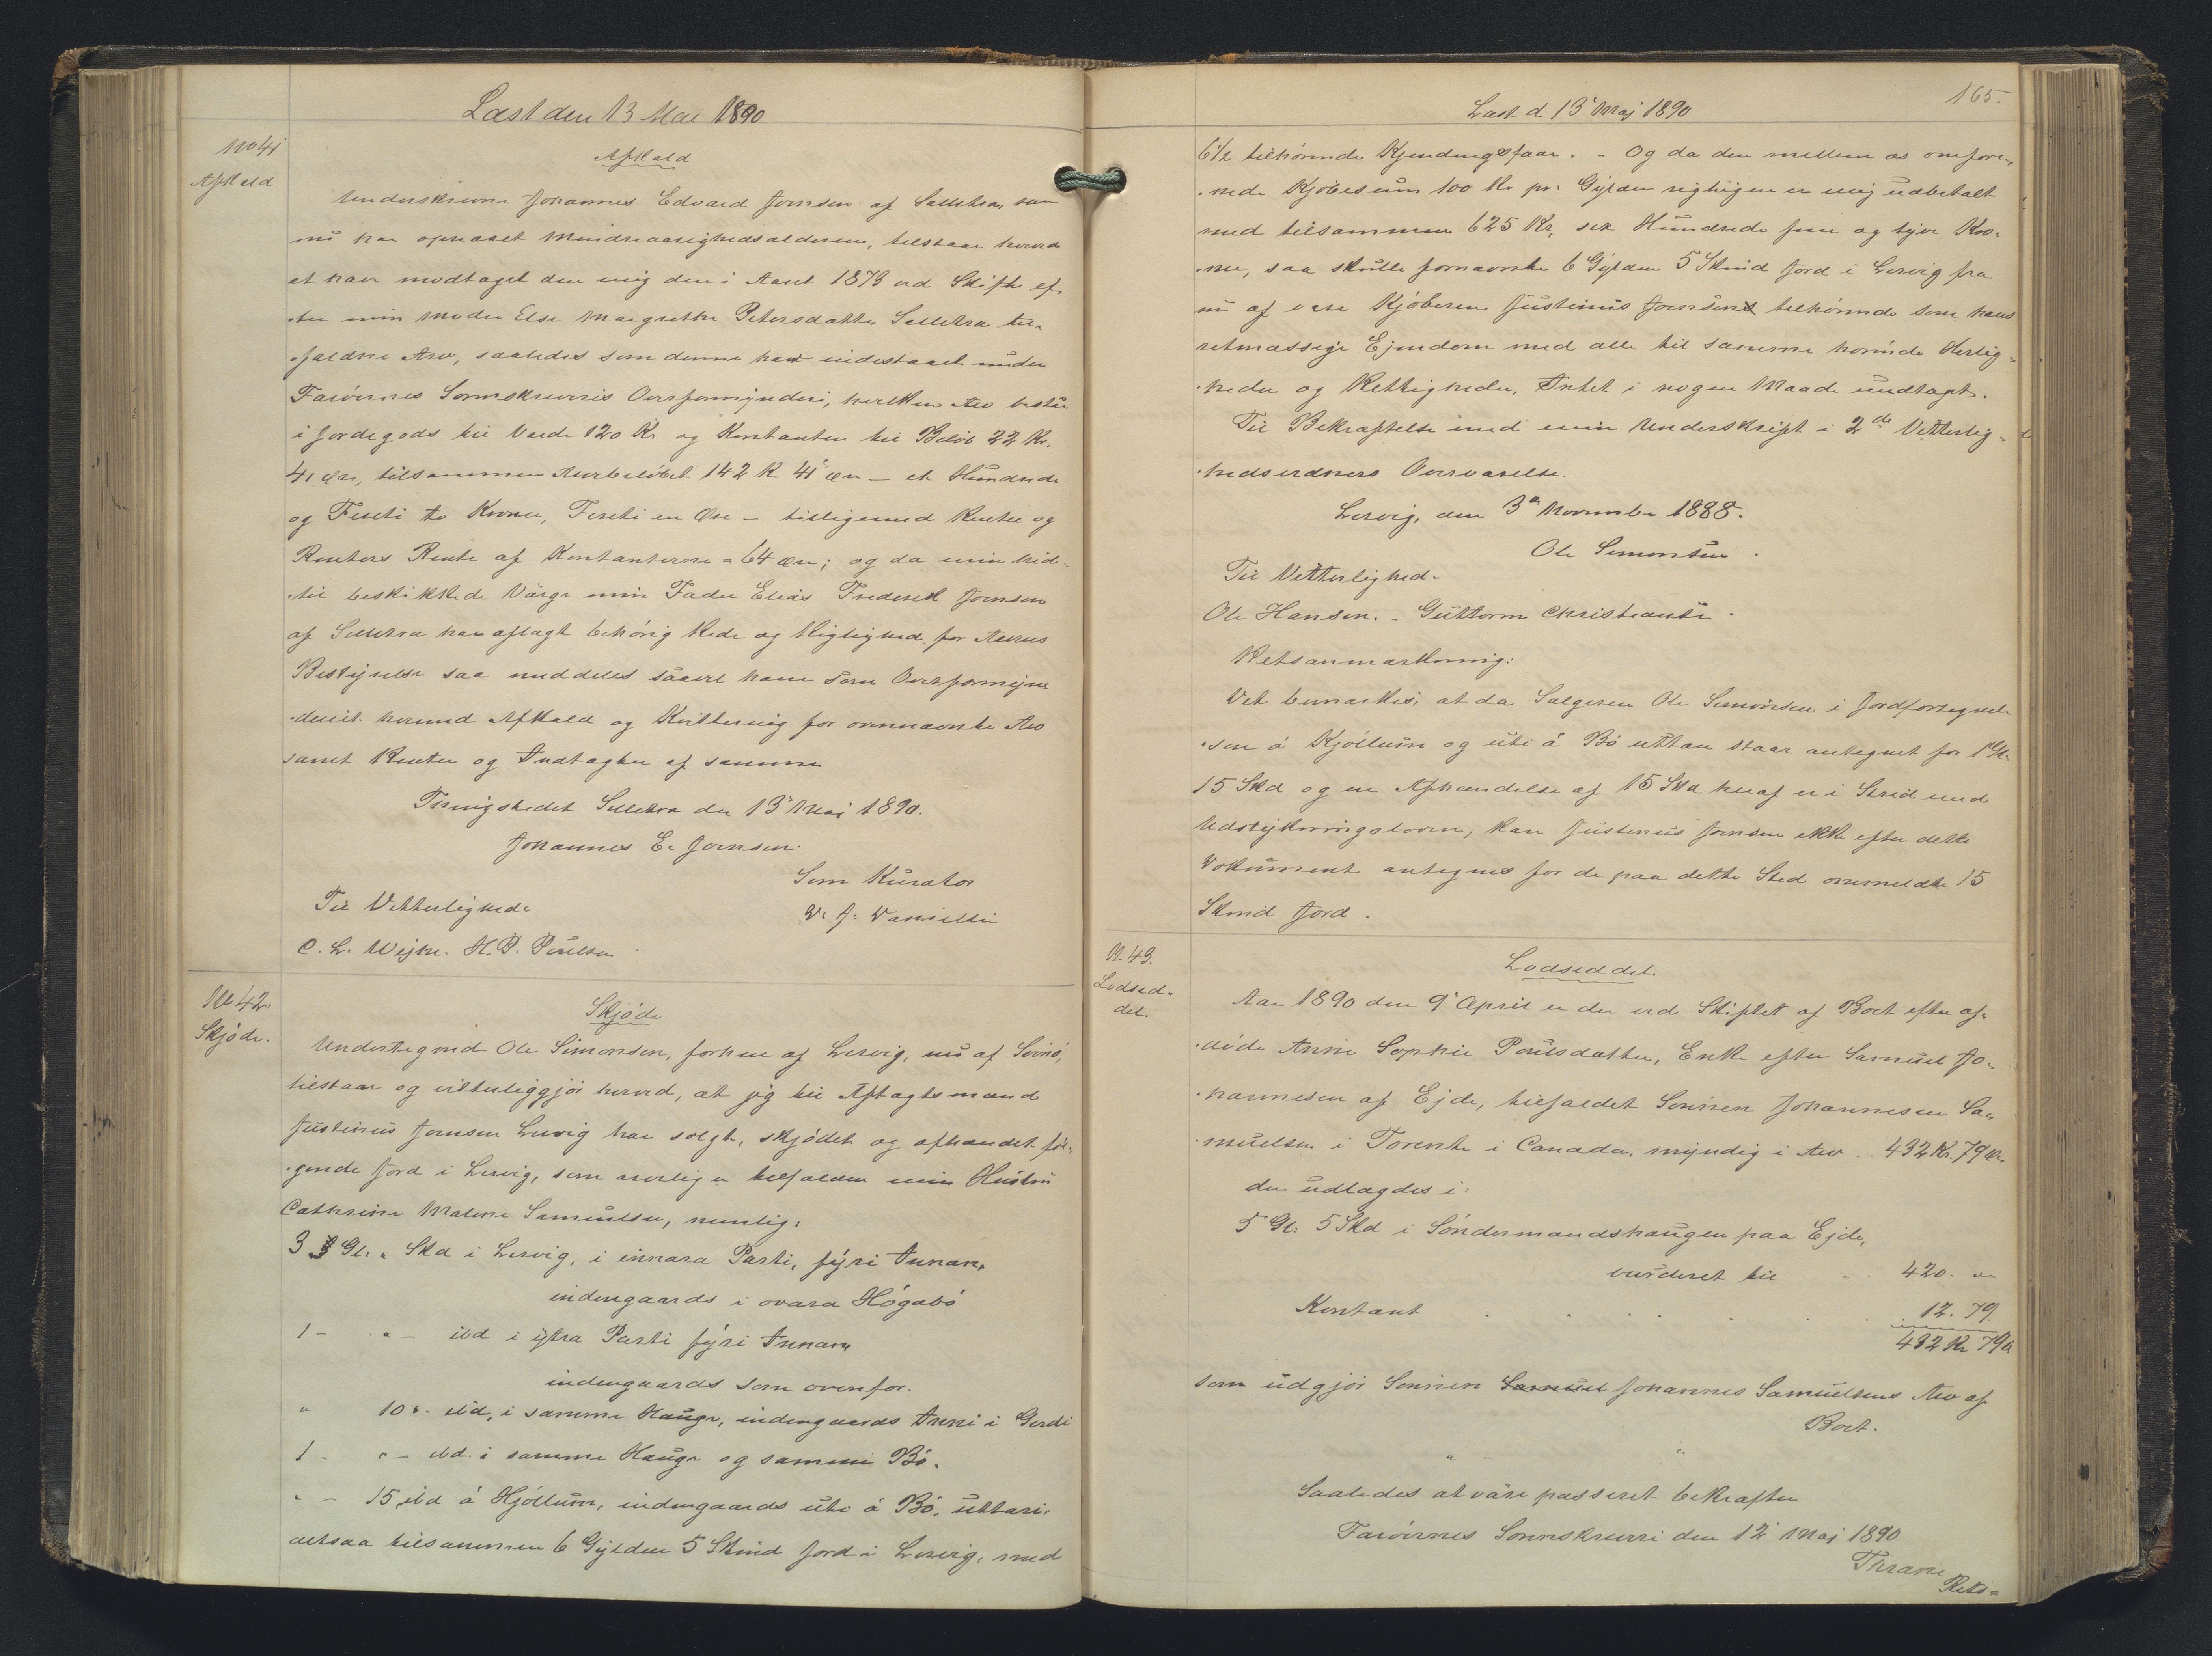 Læst den 13 Mai 1890
No 41
Afkald
Afkald
Underskrevne Johannes Edvard Joensen af Selletra, som
nu har opnaaet Mindreaarighedsalderen, tilstaar herved
at have modtaget den mig den i Aaret 1879 ved Skifte ef-
ter min Moder Else Margrethe Petersdatter Selletra til-
faldne Arv, saaledes som denne har indestaaet under
Færöernes Sorenskriveris Overformynderi, hvilken Arv bestaar
i Jordegods til Værdi 120 Kr og Kontanter til Belöb 22 Kr.
41 Øre, tilsammen Arvebelöbet 142 K. 41 Øre - et Hundrede
og Firti to Kroner, Firti en Øre - tilligemed Renter og
Renters Rente af Kontanterne = 64 Øre; og da min hid-
til beskikkede Værge min Fader Elias Frederik Joensen
af Selletra har aflagt behörig Rede og Rigtighed for Arvens
Bestyrelse saa meddeles saavel ham som Overformyn-
deriet herved Afkald og Kvittering for ovennævnte Arv
samt Renter og Indtægter af samme
Thingstedet Selletra den 13 Maj 1890.
Johannes E. Joensen.
Som Kurator
Til Vitterlighed: D. J. Danielsen
C. L. Weihe. H. P. Poulsen
No 42.
Skjöde.
Skjöde
Undertegned Ole Simonsen, forhen af Lervig, nu af Svinö,
tilstaar og vitterliggjör herved, at jeg til Aftagtsmand
Justinus Joensen Lervig har solgt, skjödet og afhændet föl-
gende Jord i Lervig, som arvelig er tilfalden min Hustru
Cathrine Malene Samuelsen, nemlig:
3 Gl. " Skd i Lervig, i innara Parti, fyri Innan,
indengaards i ovara Högabö
1 - " - ibd i ytra Parti fyri Innan
indengaards som ovenfor.
" 10 " - ibd, i samme Hauge, indengaards Inni i Gerdi
1 - " - ibd. i samme Hauge og samme Bö.
" - 15 ibd á Hjöllum, indengaards uti á Bö, uttari.
altsaa tilsammen 6 Gylden 5 Skind Jord i Lervig, med
165.
Læst d. 13 Maj 1890
6 1/2 tilhörende Kjendingsfaar. - Og da den mellem os omfore-
nede Kjöbesum 100 Kr pr. Gylden rigtigen er mig udbetalt
med tilsammen 625 Kr, sex Hundrede fem og tyve Kro-
ner, saa skulle fornævnte 6 Gylden 5 Skind Jord i Lervig fra
nu af være Kjöberen Justinus Joensen tilhörende som hans
retmæssige Ejendom med alle til samme hørende Herlig-
heder og Rettigheder, Intet i nogen Maade undtaget.
Til Bekræftelse med min Underskrift i 2de Vitterlig-
hedsvidners Overværelse.
Lervig, den 3de November 1888.
Ole Simonsen.
Til Vitterlighed.
Ole Hansen. - Guttorm Christiansen.
Retsanmærkning:
Det bemærkes, at da Sælgeren Ole Simonsen i Jordfortegnel-
sen á Hjöllum og uti á Bö uttan staar antegnet for 1 Gl.
15 Skd og en Afhændelse af 15 Skd heraf er i Strid med
Udstykningsloven, kan Justinus Joensen ikke efter dette
Dokument antegnes for de paa dette Sted ommeldte 15
Skind Jord.
N. 43.
Lodsed-
del.
Lodseddel.
Aar 1890 den 9 April er der ved Skiftet af Boet efter af-
döde Anne Sophie Poulsdatter, Enke efter Samuel Jo-
hannesen af Ejde, tilfaldet Sönnen Johannesen Sa-
muelsen i Toronto i Canada, myndig i Arv .. 432 Kr. 79 Øre
der udlagdes i:
5 Gl. 5 Skd i Söndermandshaugen paa Ejde,
vurderet til - .. 420. "
Kontant . . . . . 12. 79
432 Kr 79 Ø
som udgjör Sönnen Samuel Johannes Samuelsens Arv af
Boet.
" "
Saaledes at være passeret bekræfter
Færöernes Sorenskriveri den 12 Maj 1890
Thrane
Rets=